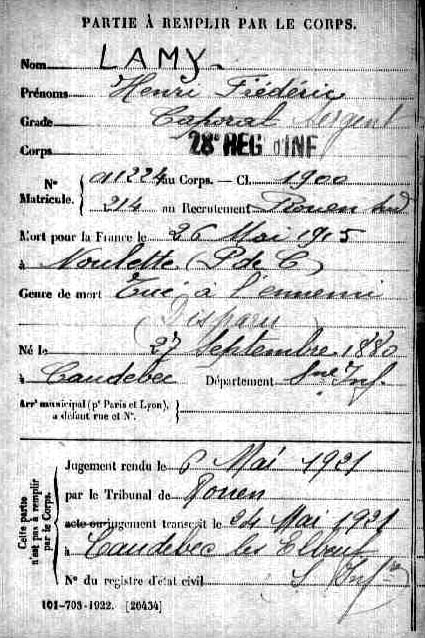 PARTIE À REMPLIR PAR LE CORPS.
Nom LAMY
Prénoms Henri Frédéric
Grade Caporal Sergent
Corps 28e REG d'INF
N° Matricule. a1224 au Corps. — Cl. 1900
214 au Recrutement Rouen Sud
Mort pour la France le 26 Mai 1915
à Noulette (P de C)
Genre de mort Tué à l'ennemi
(Disparu)
Né le 27 Septembre 1880
à Caudebec Département Sne Inf.
Arrt municipal (pr Paris et Lyon), à défaut rue et N°.
Cette partie n'est pas à remplir par le Corps.
Jugement rendu le 6 Mai 1921
par le Tribunal de Rouen
acte ou jugement transcrit le 24 Mai 1921
à Caudebec les Elbeuf
N° du registre d'état civil S Infre
101-708-1922. [26434]